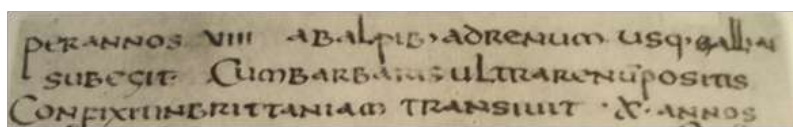 per annos VIIII ab alpib; ad renum usq. gallia
subegit. Cum barbaris ultra renū positis
Conflixit in brittaniam transiuit · X · annos